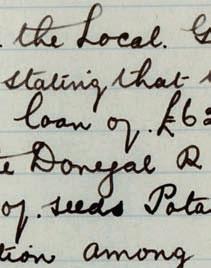 the Local. G
stating that
loan of. £62
Donegal R
of. seeds Pota
tion among